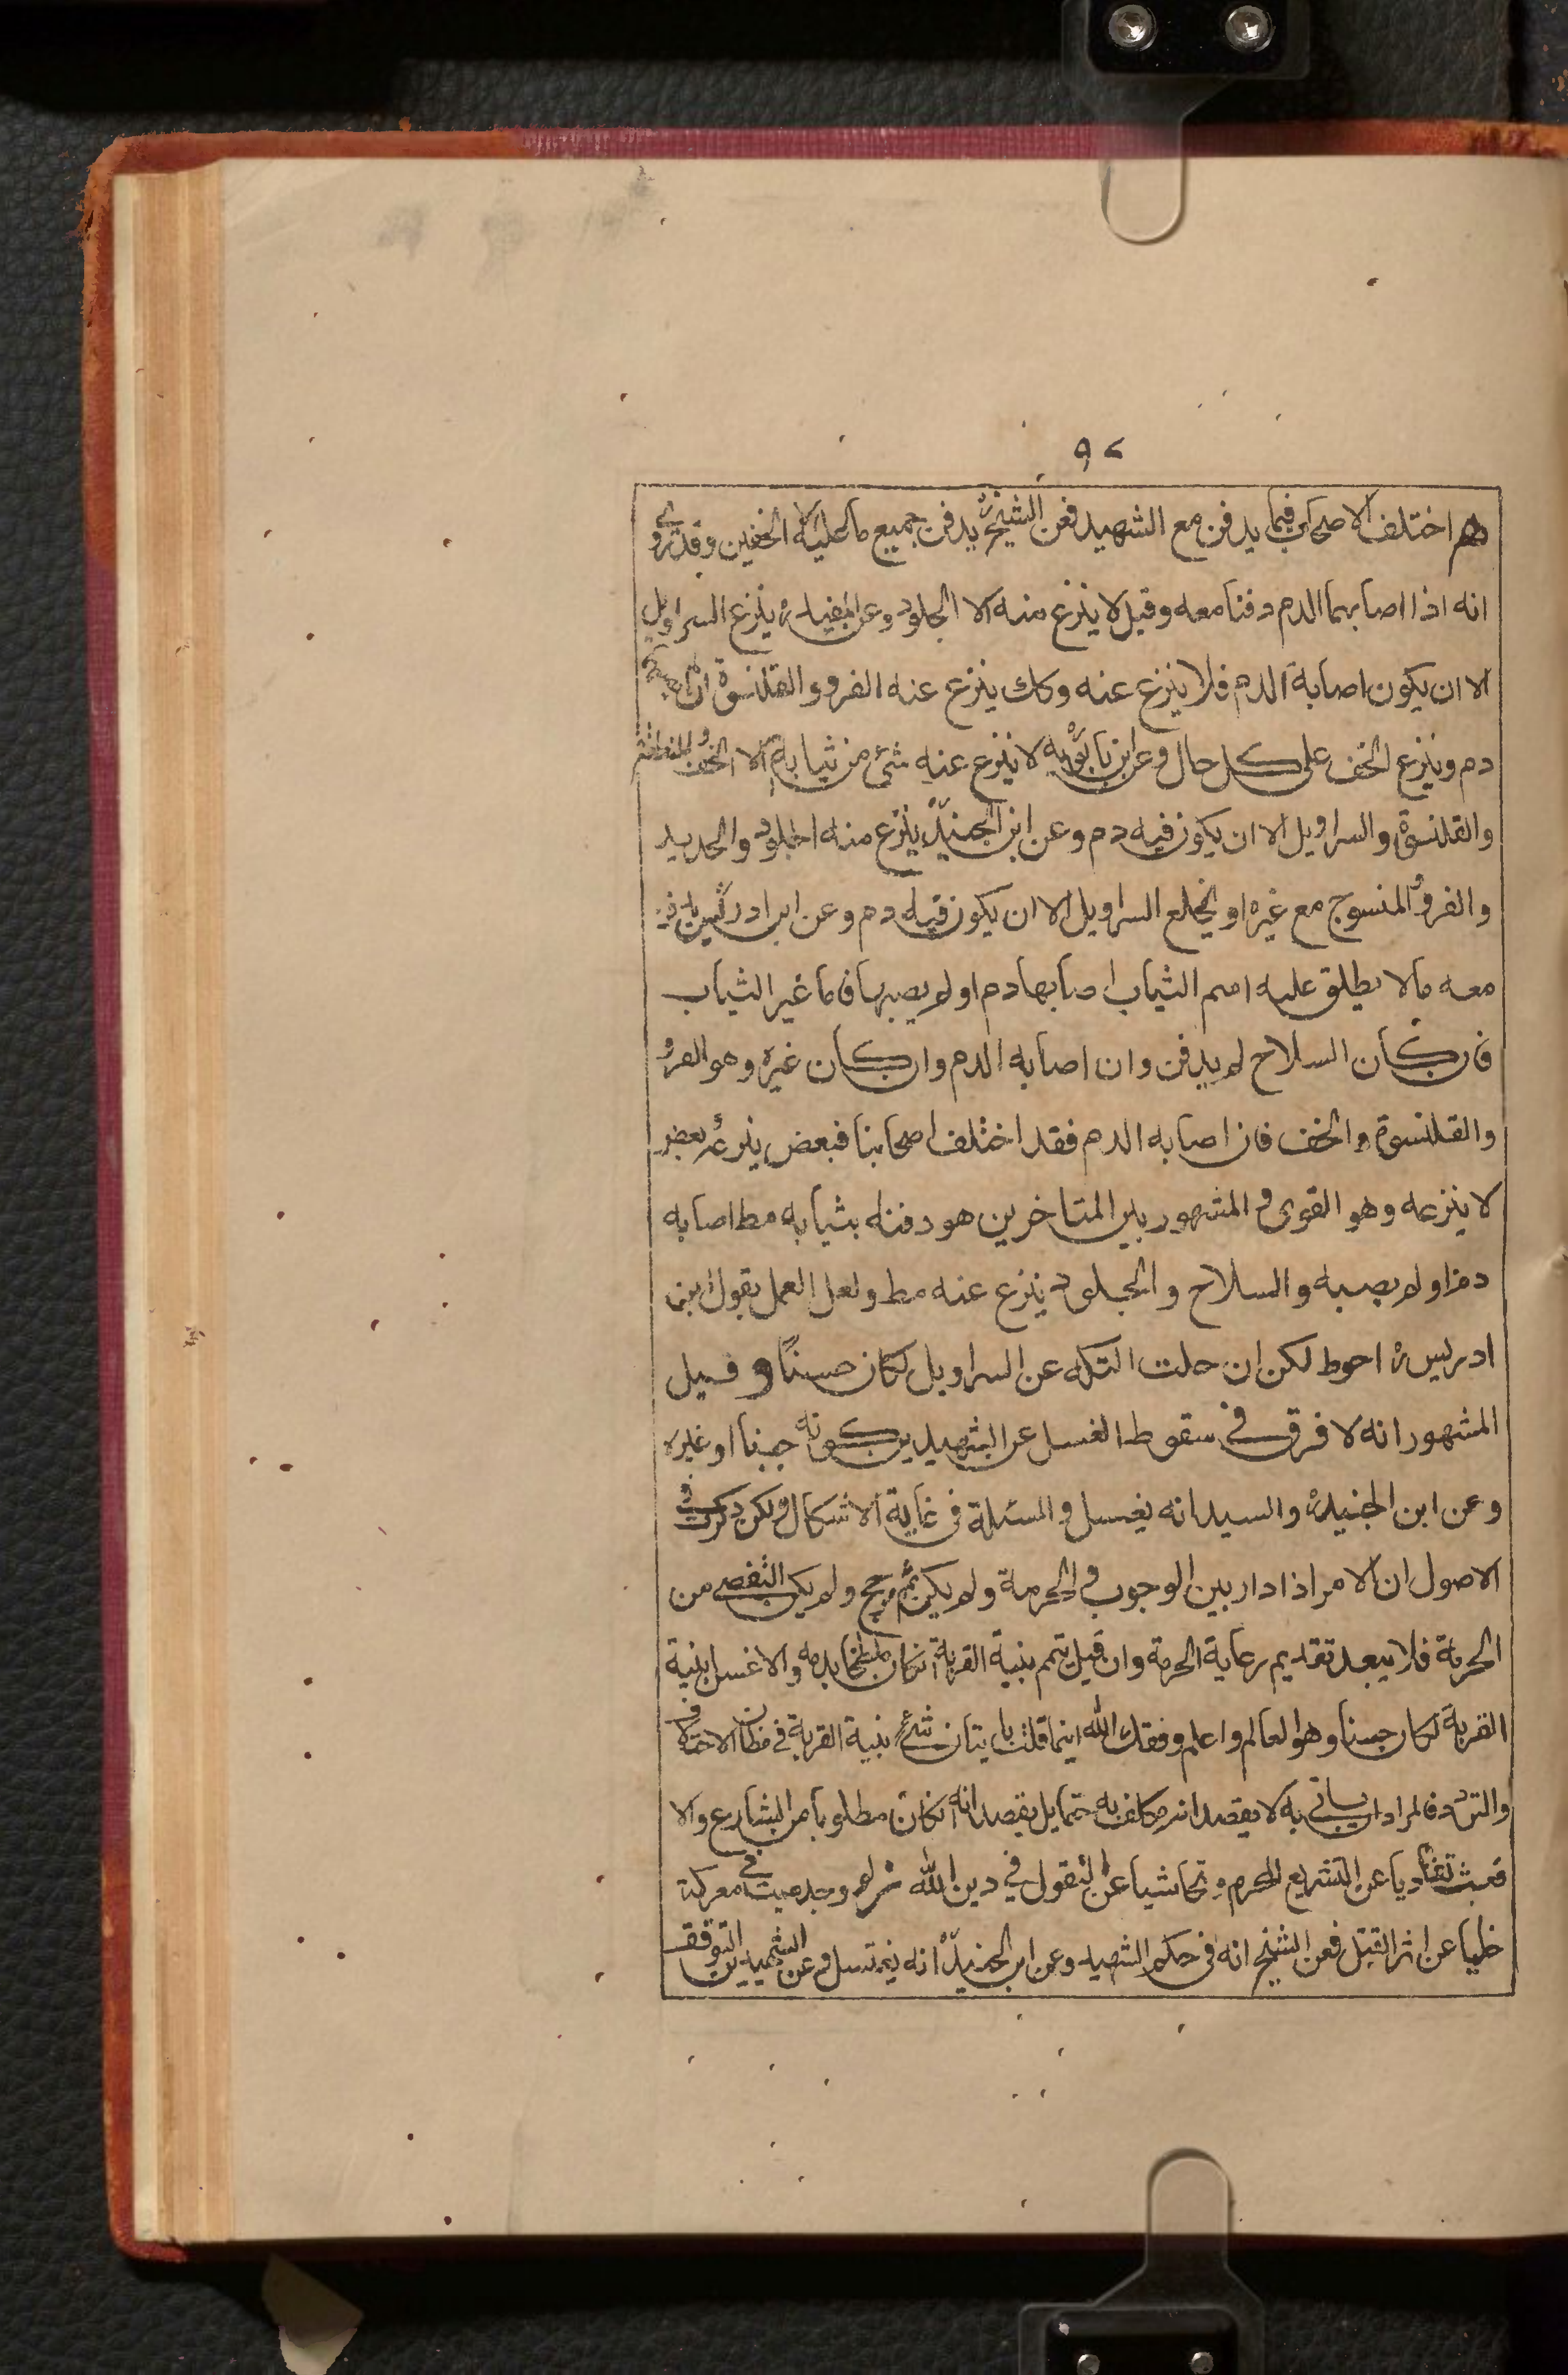 ٩٢
هم اختلف الاصحاب فيما يدفن مع الشهيد فعن الشيخ ره يدفن جميع ما عليه الا الخفين وقد روي
انه اذا اصابهما الدم دفنا معه وقيل لا ينزع منه الا الجلود وعن المفيد ره ينزع السراويل
الا ان يكون اصابه الدم فلا ينزع عنه وكك ينزع عنه الفرو والقلنسوة
دم وينزع الخف على كل حال وعن ابن بابويه ره لا ينزع عنه شئ من ثيابه الا الخف و
والقلنسوة والسراويل الا ان يكون فيه دم وعن ابن الجنيد ره ينزع منه الجلود والحديد
والفرو المنسوج مع غيره او يخلع السراويل الا ان يكون فيه دم وعن ابن ادريس
معه ما لا يطلق عليه اسم الثياب اصابها دم او لم يصبها فاما غير الثياب
فان كان السلاح لم يدفن وان اصابه الدم وان كان غيره وهو الفرو
والقلنسوة والخف فان اصابه الدم فقد اختلف اصحابنا فبعض ينزعه وبعض
لا ينزعه وهو القوى و المشهور بين المتاخرين هو دفنه بثيابه مط اصابه
دم او لم يصبه والسلاح والجلود ينزع عنه مط ولعل العمل بقول ابن
ادريس ره احوط لكن ان حلت التكه عن السراويل لكان حسنا و قيل
المشهور انه لا فرق في سقوط الغسل عن الشهيد بين كونه جنبا او غيره
وعن ابن الجنيد ره والسيد انه يغسل والمسئلة في غاية الاشكال ولكن ذكرت في
الاصول ان الامر اذا دار بين الوجوب والحرمة ولم يكن ثم مرجح ولم يكن التفصي من
الحرمة فلا يبعد تقديم رعاية الحرمة وان قيل تيمم بنية القربة ان كان ملطخا بدمه والا غسل بنية
القربة لكان حسنا وهو العالم واعلم وفقك الله اينما قلت باتيان شئ بنية القربة في مظان الاحتمال
والتردد فالمراد ان ياتي به لا بقصد انه مكلف به حتما بل بقصد انه ان كان مطلوبا من الشارع والا
فعبث تفاديا عن التشريع المحرم و تحاشيا عن التقول في دين الله لو وجد ميت في معركة
خليا عن اثر القتل فعن الشيخ انه في حكم الشهيد وعن ابن الجنيد ره انه يغتسل و عن الشهيدين التوقف